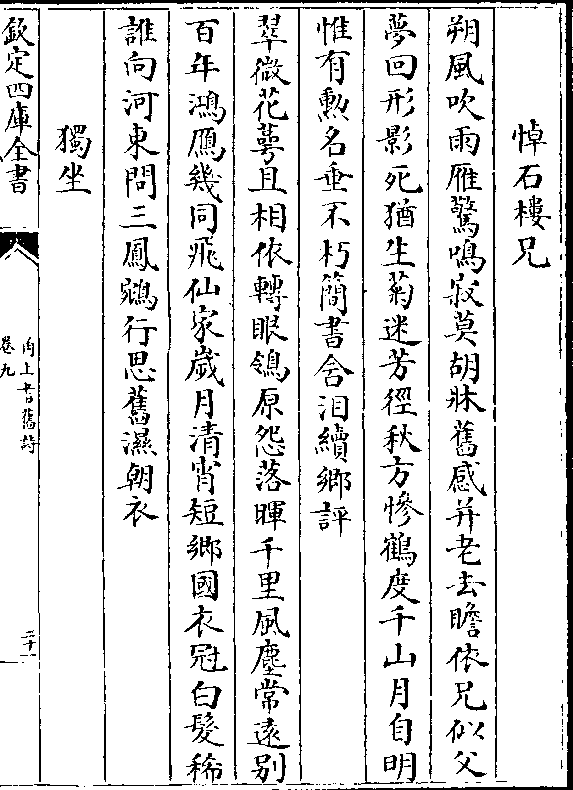 悼石樓兄
朔風吹雨雁驚鳴寂莫胡牀舊感并老去瞻依兄似父
夢回形影死猶生菊迷芳徑秋方慘鶴度千山月自明
惟有勲名垂不朽簡書含泪續鄉評
翠微花萼且相依轉眼鴒原怨落暉千里風塵常逺别
百年鴻鴈幾同飛仙家歲月清宵短鄉國衣冠白髮稀
誰向河東問三鳳鵷行思舊濕朝衣
獨坐
欽定四庫全書
卷九
二十一